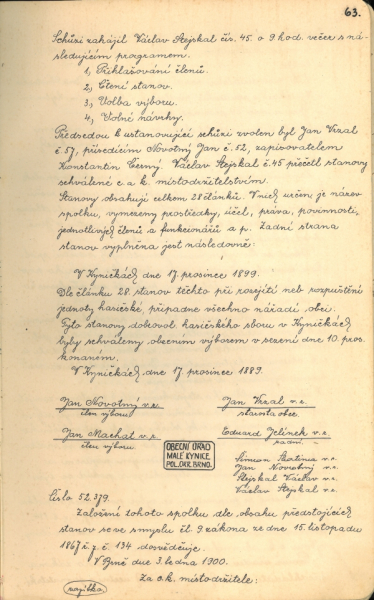 63.
Schůzi zahájil Václav Stejskal čís. 45. o 9 hod. večer s ná-
sledujícím programem.
1, Přihlašování členů.
2, Čtení stanov.
3, Volba výboru.
4, Volné návrhy.
Předsedou k ustanovující schůzi zvolen byl Jan Vrzal
č. 57, přísedícím Novotný Jan č. 52, zapisovatelem
Konstantin Černý. Václav Stejskal č. 45 přečetl stanovy
schválené c. a k. místodržitelstvím.
Stanovy obsahují celkem 28 článků. V nich určen je název
spolku, vymezeny prostředky, účel, práva, povinnosti,
jednotlivých členů a funkcionářů a p. Zadní strana
stanov vyplněna jest následovně:
V Kyničkách dne 17. prosince 1899.
Dle článku 28. stanov těchto při rozejití neb rozpuštění
jednoty hasičské, připadne všechno nářadí obci.
Tyto stanovy dobrovol. hasičského sboru v Kyničkách
byly schváleny obecním výborem v sezení dne 10. pros.
konaném.
V Kyničkách dne 17. prosince 1889.
Jan Novotný v. r. Jan Vrzal v. r.
člen výboru starosta obce.
Jan Machat v. r. Eduard Jelínek v. r.
člen výboru radní
OBECNÍ ÚŘAD
MALÉ KYNICE,
POL. OKR. BRNO.
Šimon v. r.
Jan Novotný v. r.
Stejskal Václav v. r.
Václav Stejskal v. r.
Číslo 52.379.
Založení tohoto spolku dle obsahu předstojících
stanov se ve smyslu čl. 9. zákona ze dne 15. listopadu
1867 ř. z. č. 134 dosvědčuje.
V Brně dne 3. ledna 1900.
Za c. k. místodržitele: